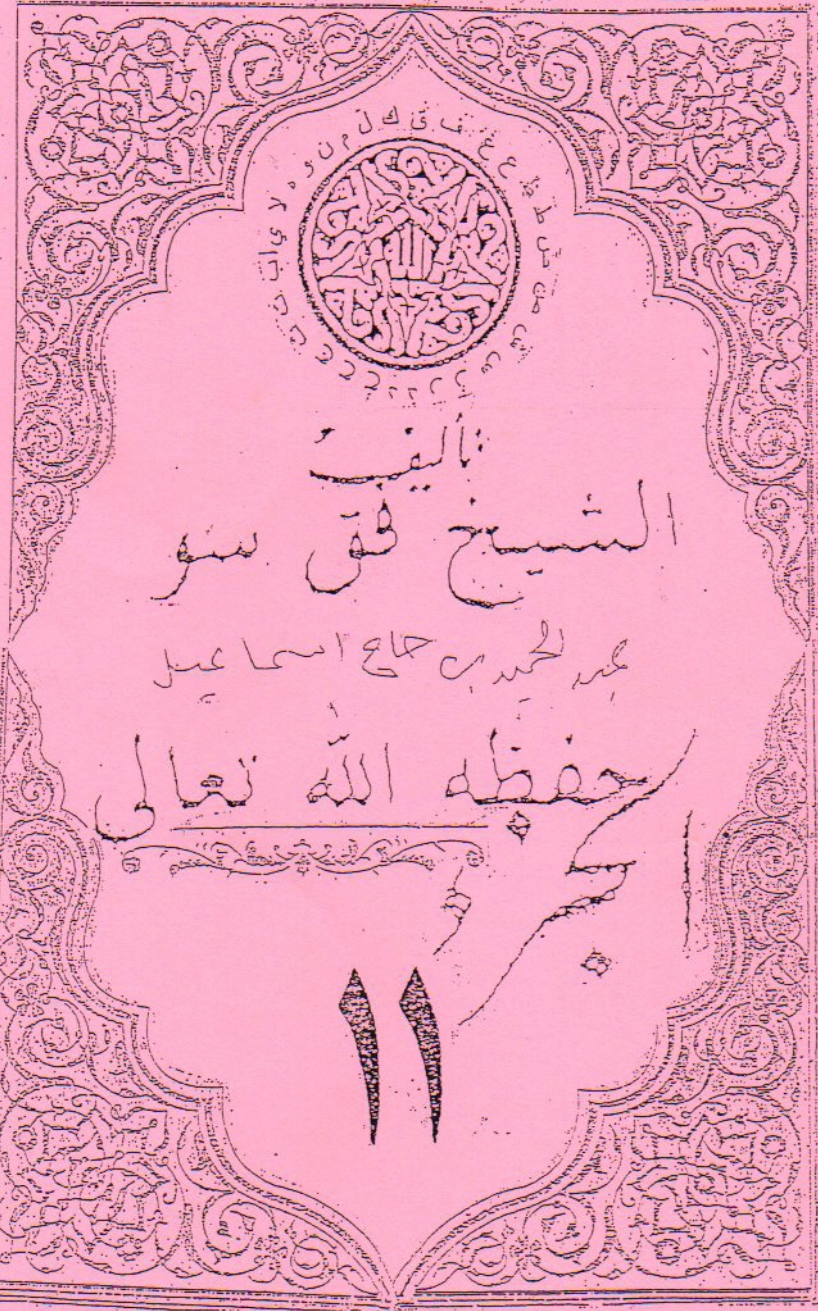 ا ب ت ث ج ح خ د ذ ر ز س ش ص ض ط ظ ع غ ف ق ك ل م ن و ه لا ي
الله
تأليف
الشيخ فقى سو
عبد الحميد بن حاج اسماعيل
حفظه الله تعالى
الجزء
١١